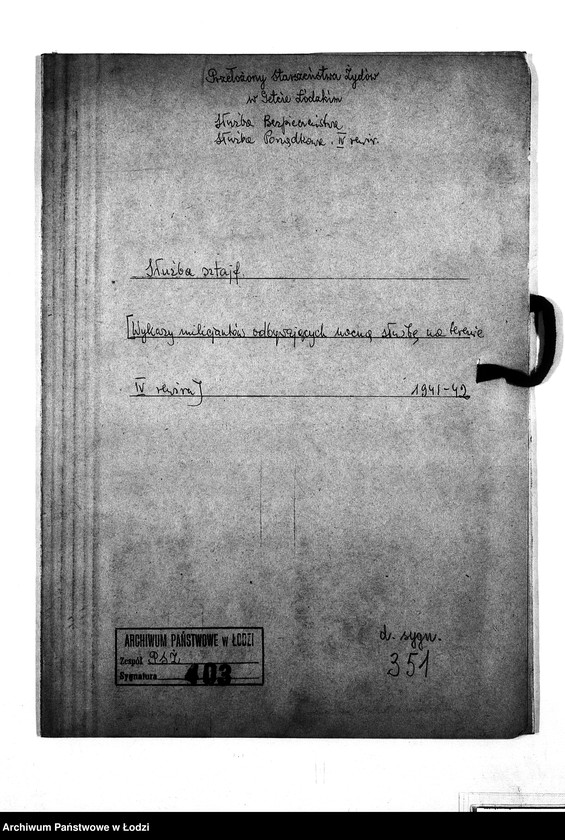 Przełożony Starszeństwa Żydów
w Getcie Łódzkim
Służba Bezpieczeństwa
Służba Porządkowa. IV rewir.
Służba sztajf
[Wykazy milicjantów odbywających nocną służbę na terenie
IV rewiru] 1941-42
ARCHIWUM PAŃSTWOWE w ŁODZI
Zespół PSŻ
Sygnatura 403
d. sygn.
351
Archiwum Państwowe w Łodzi